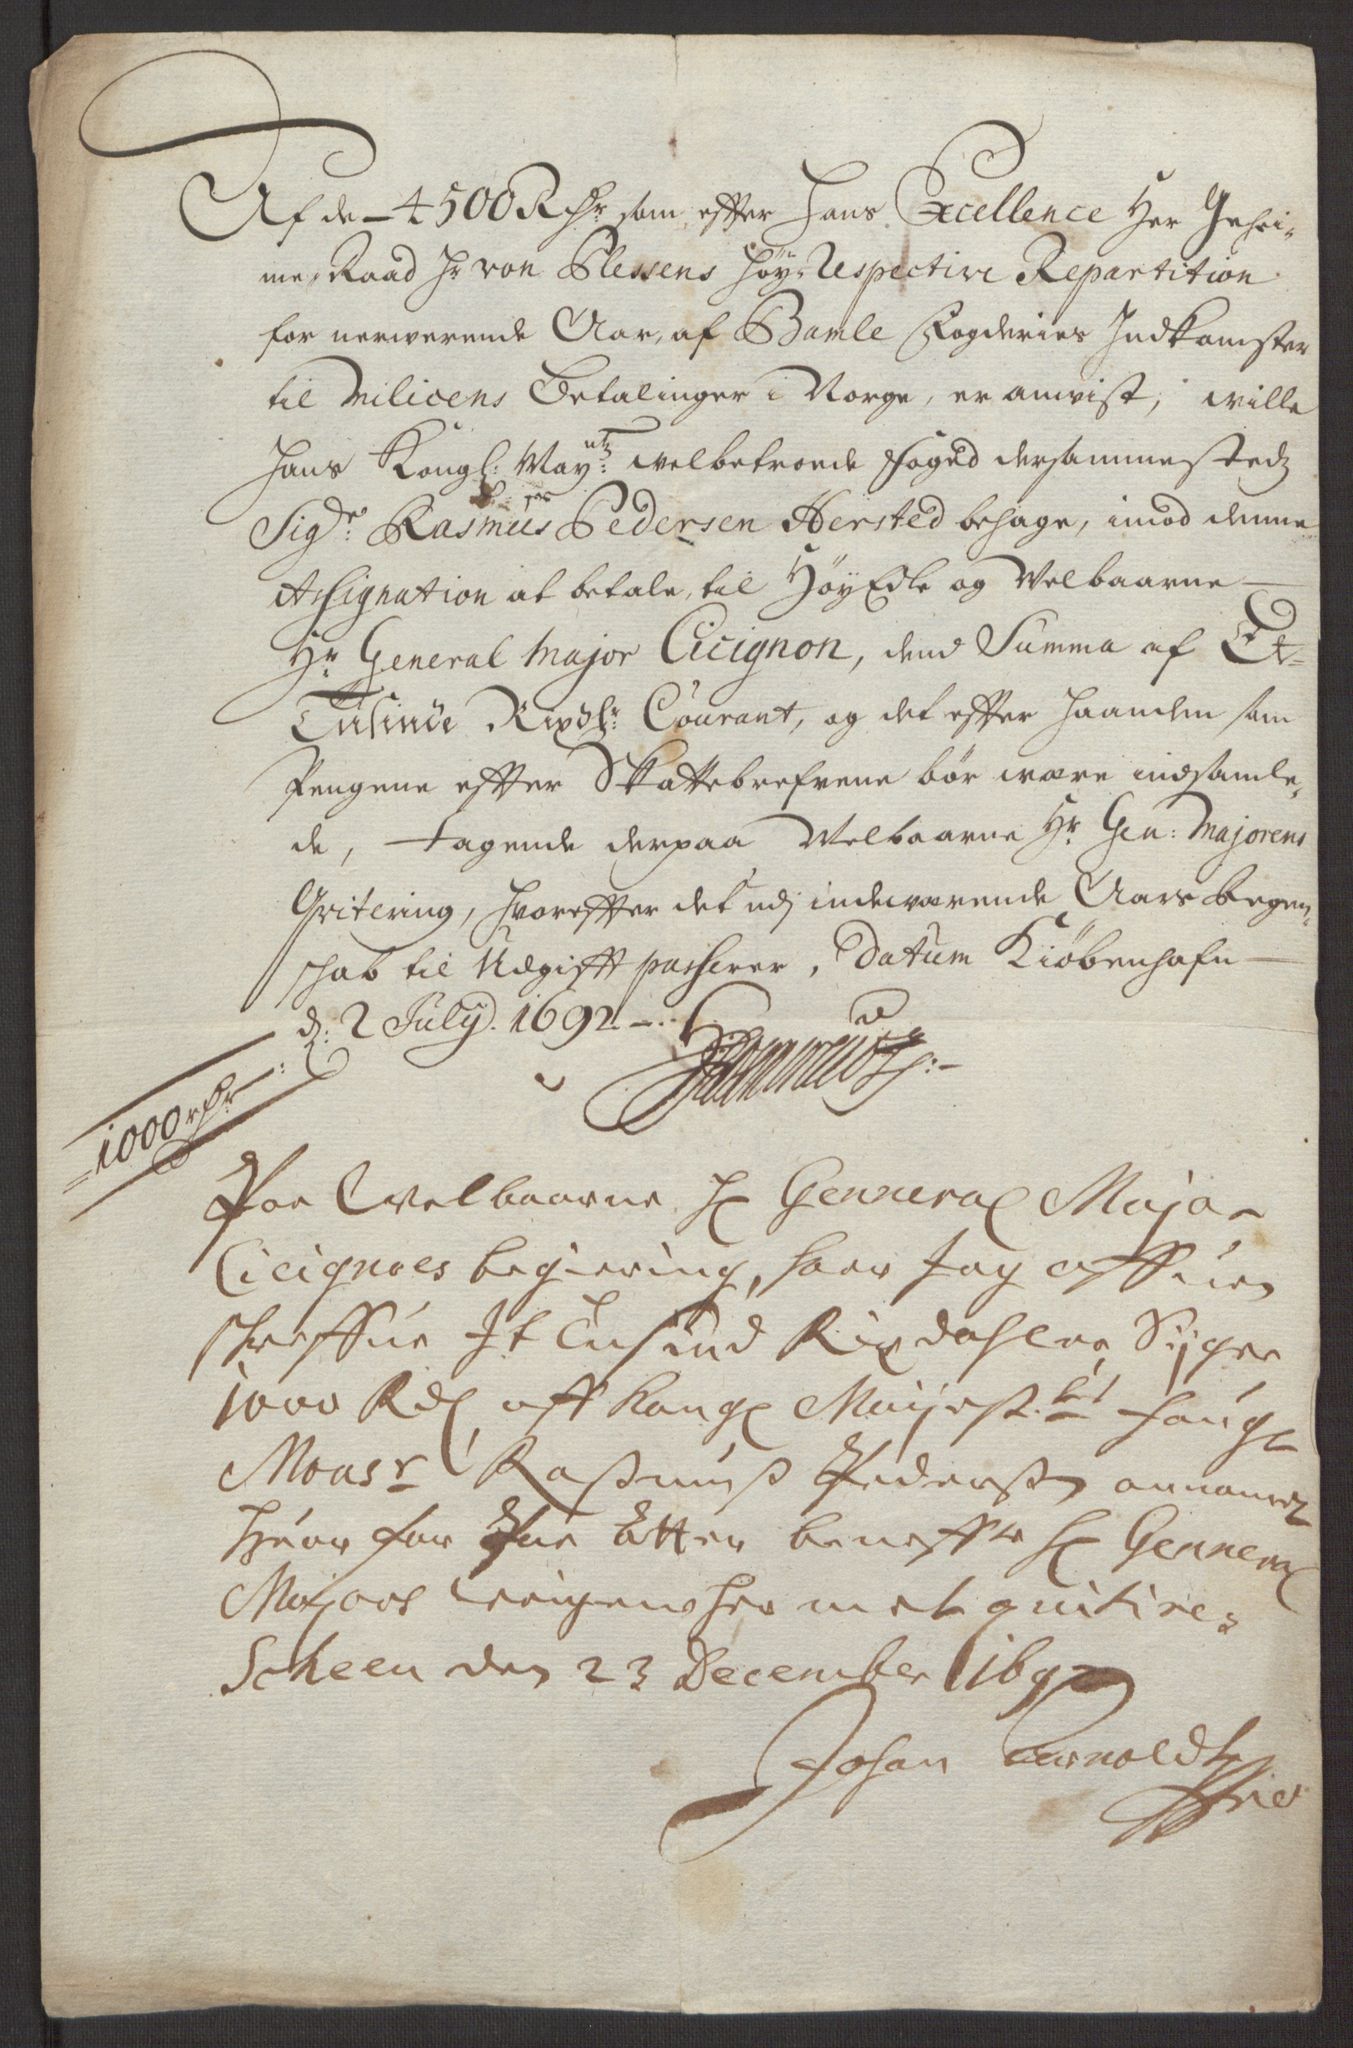 Af de 4500 Rdr som efter Hans Excellence Her Gehei-
me Raad Hr von Plessens høy-Respective Repartition
for nerwerende Aar, af Bamle Fogderies Indkomster
til Milicens Betalinger i Norge, er anvist, wille
Hans Kongl: Mayts: welbetroede Foged dersammestedz
Sigr: Rasmus Pedersen Hersted behage, imod denne
Assignation at betale, til HøyEdle og Velbaarne
Hr General Major Cicignon, dend Summa af Et-
Tusinde Rixdlr: Courant, og det efter haanden som
Pengene efter Skattebrefvene bør være indsamle-
de, tagende derpaa Velbaarne Hr Gen: Majorens
Qvitering, hvorefter det udj indeværende Aars Regen-
schab til Udgift passerer, Datum Kiøbenhafn
d: 2 July. 1692
1000 rdr
Paa Welbaarne H General Major
Cicignons begiering, haer Jeg
Et Tusind Rixdahler, Siger
1000 Rdl, aff Kongl Mayest:ts Foug
Monsr Rasmus Pedersen annammet
Huor for H Genneral
Majors wegen her met quitires
Scheen den 23 December 1692
Johan Arnoldt